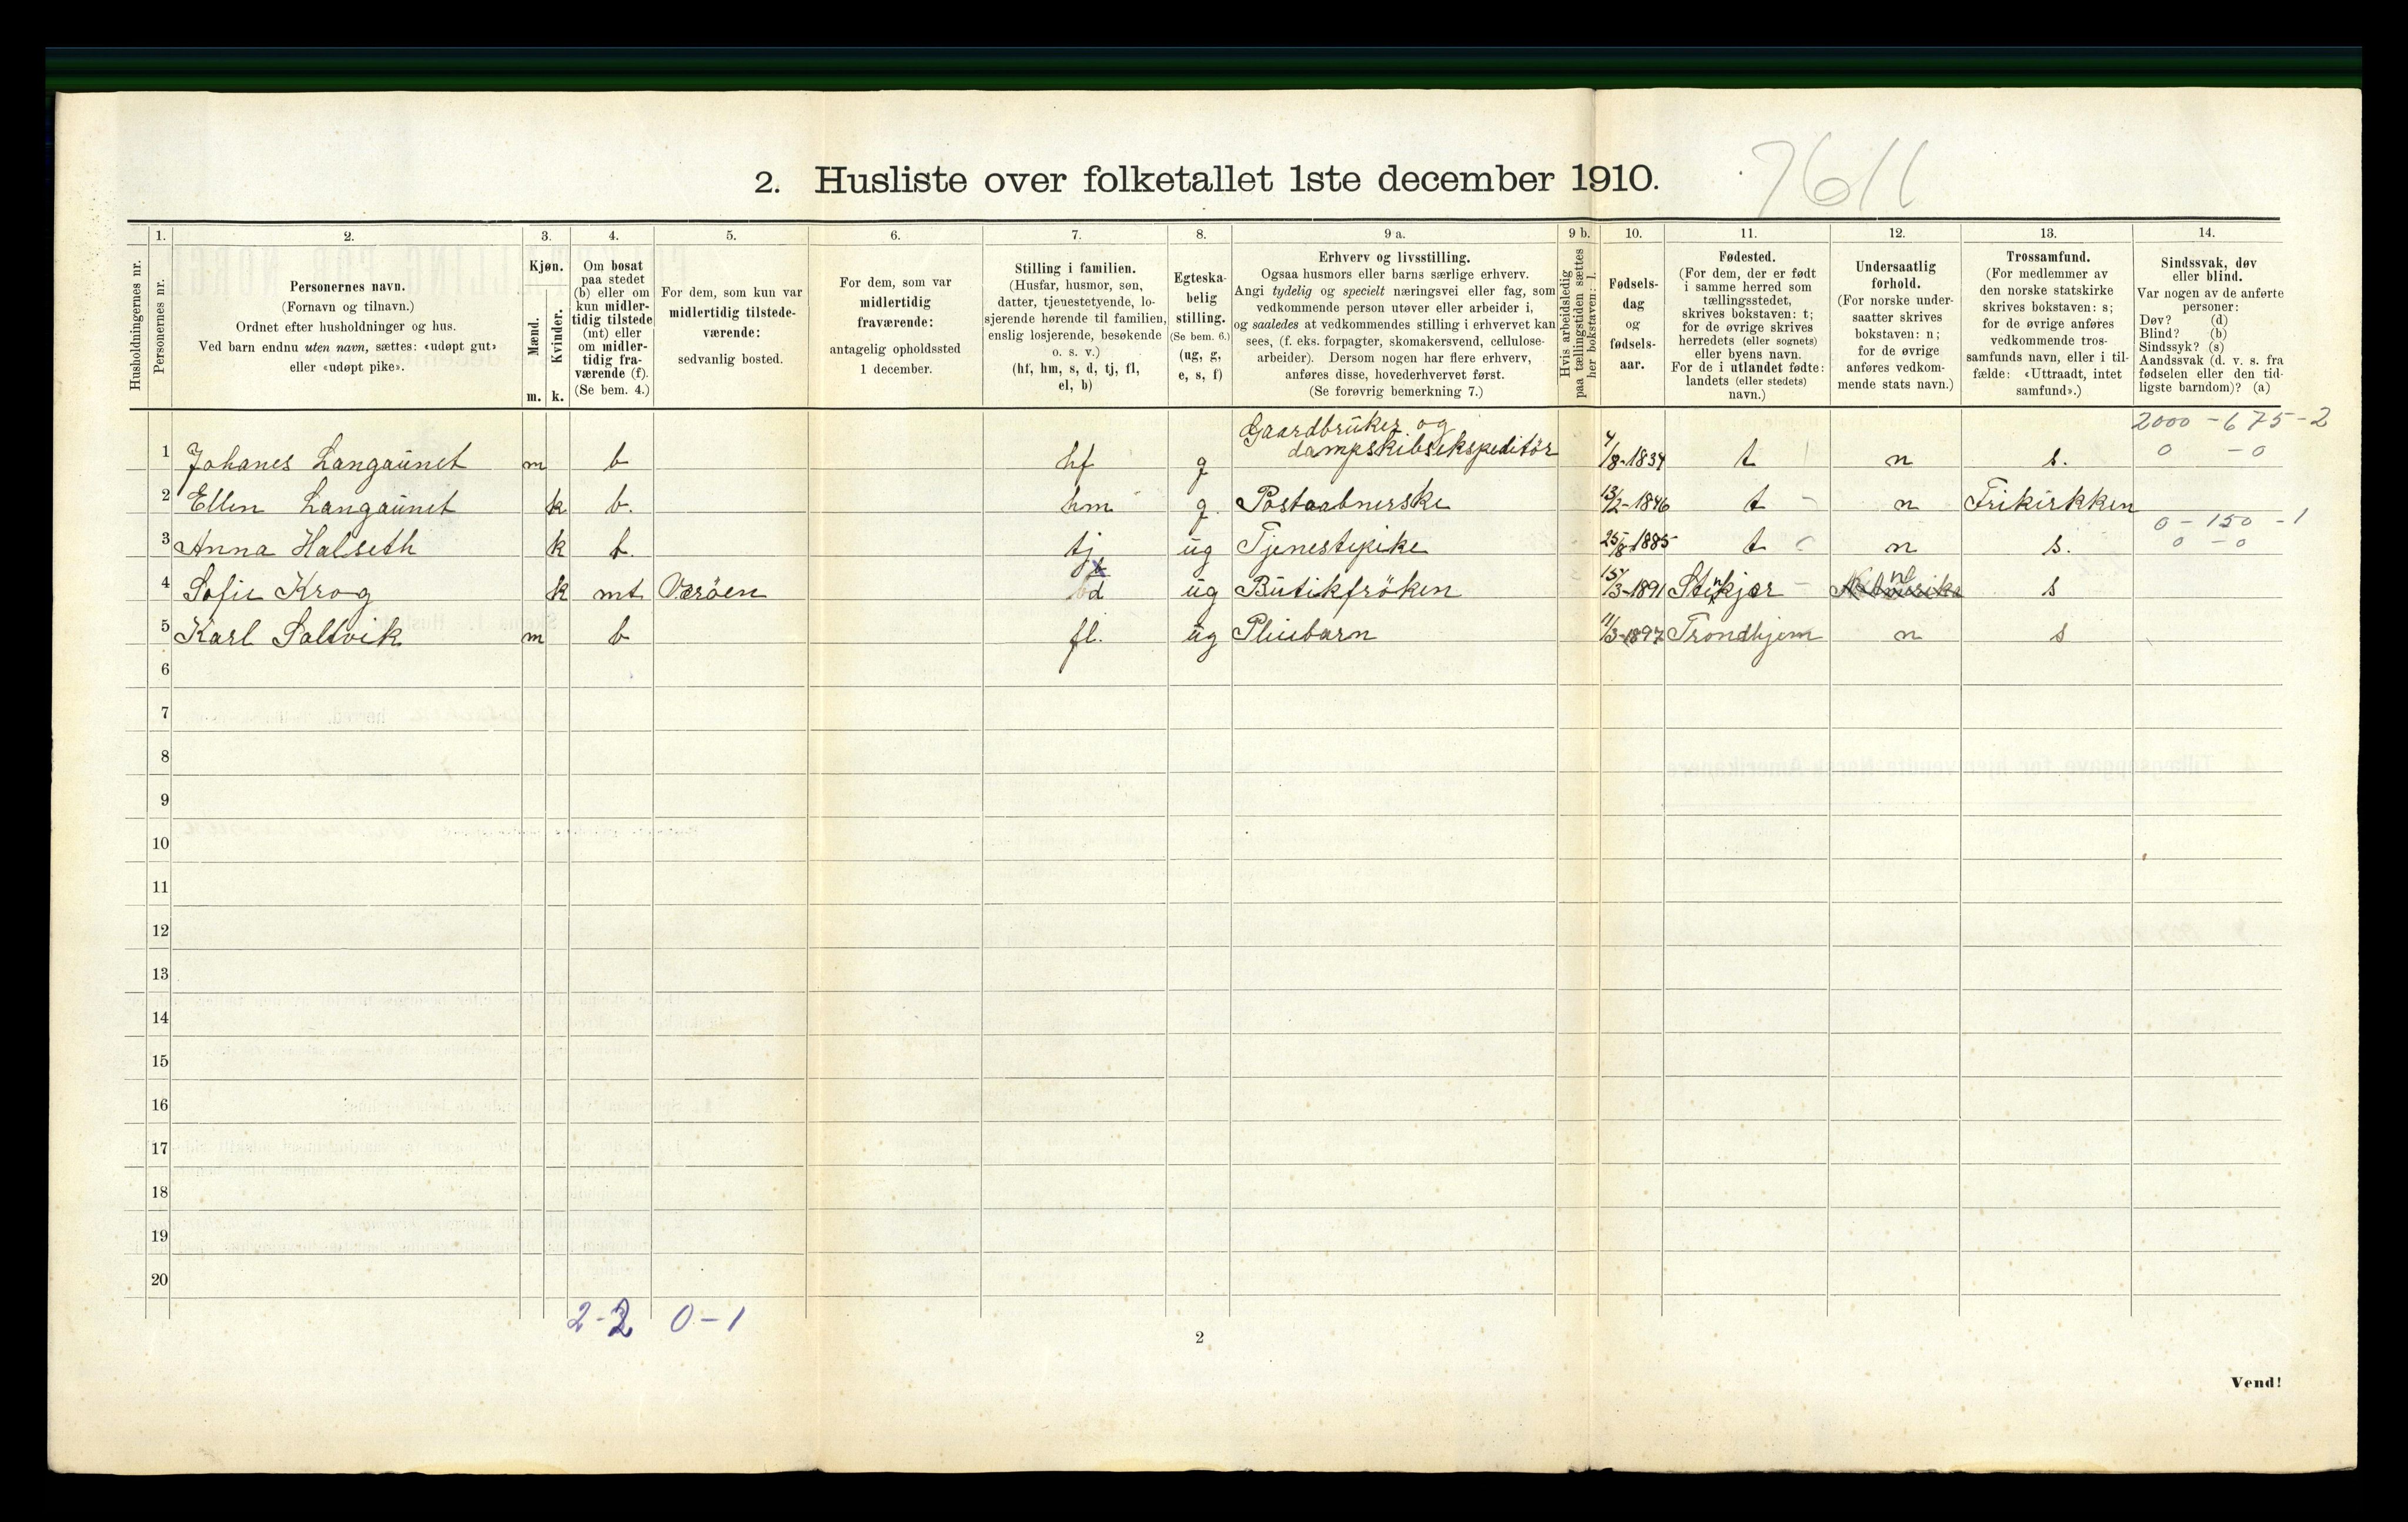 2. Husliste over folketallet 1ste december 1910.
7611
Husholdningernes nr.
1.
Personernes nr.
2.
Personernes navn.
(Fornavn og tilnavn.)
Ordnet efter husholdninger og hus.
Ved barn endnu uten navn, sættes: «udøpt gut»
eller «udøpt pike».
3.
Kjøn.
Mænd.
Kvinder.
m. k.
4.
Om bosat
paa stedet
(b) eller om
kun midler-
tidig tilstede
(mt) eller
om midler-
tidig fra-
værende (f).
(Se bem. 4.)
5.
For dem, som kun var
midlertidig tilstede-
værende:
sedvanlig bosted.
6.
For dem, som var
midlertidig
fraværende:
antagelig opholdssted
1 december.
7.
Stilling i familien.
(Husfar, husmor, søn,
datter, tjenestetyende, lo-
sjerende hørende til familien,
enslig losjerende, besøkende
o. s. v.)
(hf, hm, s, d, tj, fl,
el, b)
8.
Egteska-
belig
stilling.
(Se bem. 6.)
(ug, g,
e, s, f)
9 a.
Erhverv og livsstilling.
Ogsaa husmors eller barns særlige erhverv.
Angi tydelig og specielt næringsvei eller fag, som
vedkommende person utøver eller arbeider i,
og saaledes at vedkommendes stilling i erhvervet kan
sees, (f. eks. forpagter, skomakersvend, cellulose-
arbeider). Dersom nogen har flere erhverv,
anføres disse, hovederhvervet først.
(Se forøvrig bemerkning 7.)
9 b.
Hvis arbeidsledig
paa tællingstiden sættes
her bokstaven: l.
10.
Fødsels-
dag
og
fødsels-
aar.
11.
Fødested.
(For dem, der er født
i samme herred som
tællingsstedet,
skrives bokstaven: t;
for de øvrige skrives
herredets (eller sognets)
eller byens navn.
For de i utlandet fødte:
landets (eller stedets)
navn.)
12.
Undersaatlig
forhold.
(For norske under-
saatter skrives
bokstaven: n;
for de øvrige
anføres vedkom-
mende stats navn.)
13.
Trossamfund.
(For medlemmer av
den norske statskirke
skrives bokstaven: s;
for de øvrige anføres
vedkommende tros-
samfunds navn, eller i til-
fælde: «Uttraadt, intet
samfund».)
14.
Sindssvak, døv
eller blind.
Var nogen av de anførte
personer:
Døv? (d)
Blind? (b)
Sindssyk? (s)
Aandssvak (d. v. s. fra
fødselen eller den tid-
ligste barndom)? (a)
2000 - 675 - 2
0 - 0
Gaardbruker og
1 Johanes Langaunet m b hf g dampskibsekspeditör 4/8-1834 t n s.
2 Ellen Langaunet k b. hm g. Postaabnerske 13/2-1846 t - n Frikirkken
0 - 150 - 1
3 Anna Halseth k b. tj ug Tjenestepike 25/8-1885 t n s. 0 - 0
4 Sofie Krog k mt Væröen b d ug Butikfröken 15/3-1891 Stenkjær - n s
5 Karl Saltvik m b fl. ug Pleiebarn 11/3-1897 Trondhjem n s
6
7
8
9
10
11
12
13
14
15
16
17
18
19
20
2-2 0-1
2
Vend!